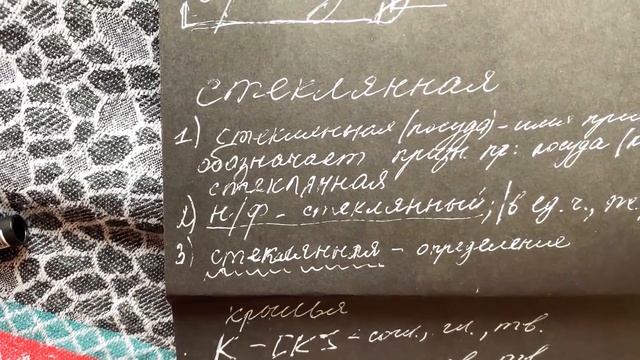 стеклянная
1) стеклянная (посуда) - имя при
обозначает призн. пр: посуда (к
стеклянная
2) н/ф - стеклянный; в ед. ч., ж.
3) стеклянная - определение
крылья
К - [К'] - согл., гл., тв.